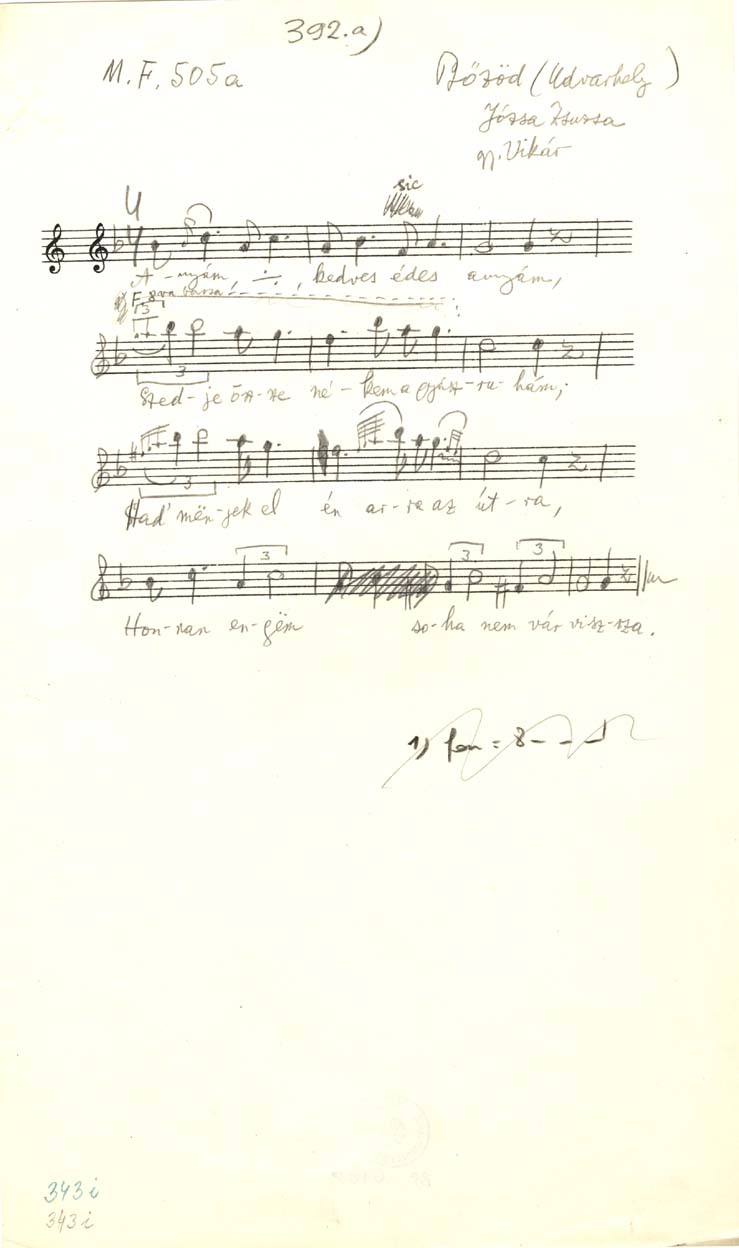 392.a)
M.F. 505a
Bözöd (Udvarhely)
Józsa Zsuzsa
gy. Vikár
sic
4
4
A-nyám, ·/·, kedves édes anyám,
8va bassa
3
3
Szed-je ösz-sze né-kem a gyász-ru-hám;
3
Had' mën-jek el én ar-ra az út-ra,
3 3 3
Hon-nan en-gëm so-ha nem vár visz-sza.
1) fon = 8 - - -
343i
343i